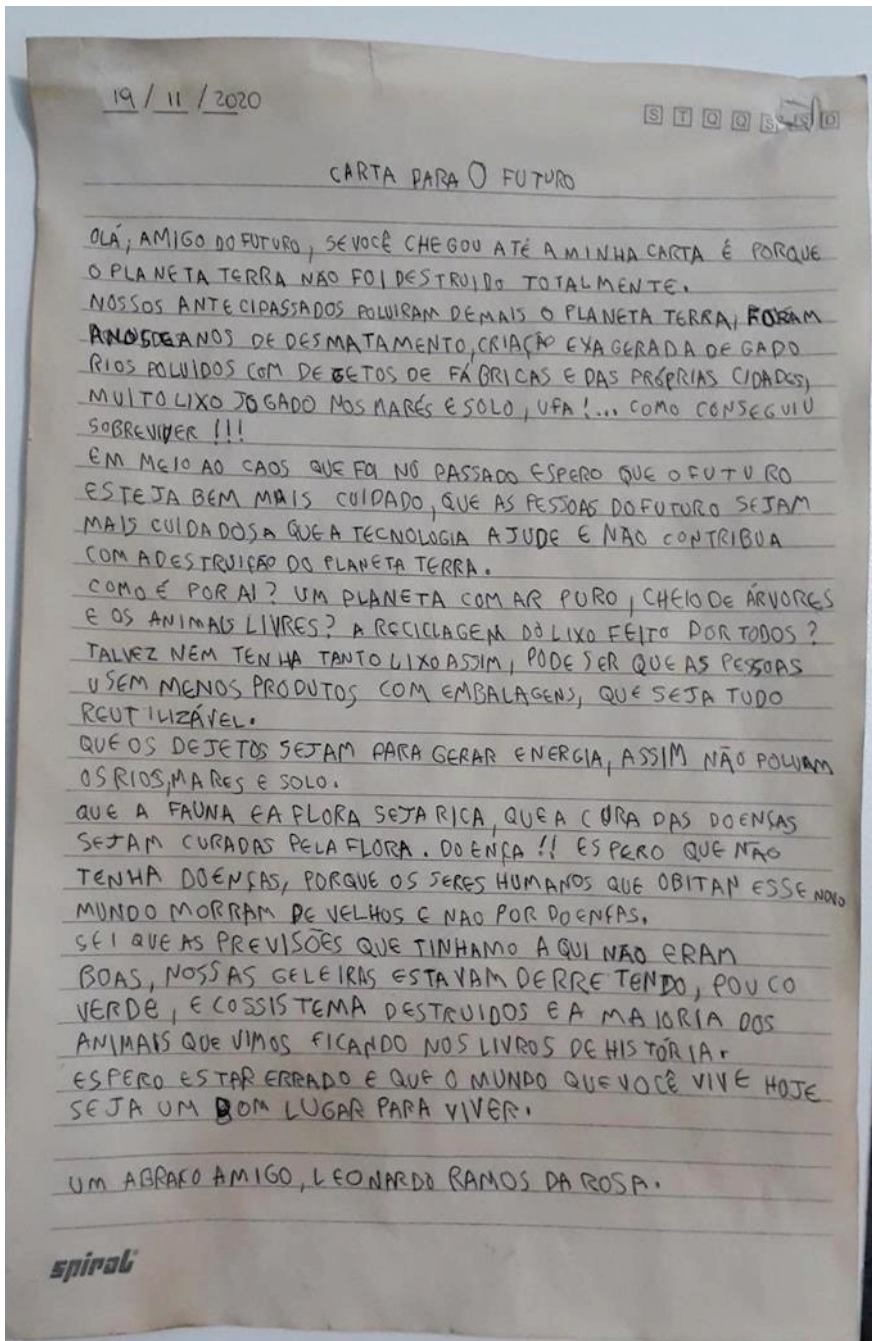 19 / 11 / 2020
S T Q Q S S D
CARTA PARA O FUTURO
OLÁ, AMIGO DO FUTURO, SE VOCÊ CHEGOU ATÉ A MINHA CARTA É PORQUE
O PLANETA TERRA NÃO FOI DESTRUIDO TOTALMENTE.
NOSSOS ANTECIPASSADOS POLUIRAM DEMAIS O PLANETA TERRA, FORAM
ANOS DE ANOS DE DESMATAMENTO, CRIAÇÃO EXAGERADA DE GADO
RIOS POLUIDOS COM DEGETOS DE FÁBRICAS E DAS PRÓPRIAS CIDADES,
MUITO LIXO JOGADO NOS MARÉS E SOLO, UFA!... COMO CONSEGUIU
SOBREVIVER !!!
EM MEIO AO CAOS QUE FOI NÓ PASSADO ESPERO QUE O FUTURO
ESTEJA BEM MAIS CUIDADO, QUE AS PESSOAS DO FUTURO SEJAM
MAIS CUIDADOSA QUE A TECNOLOGIA AJUDE E NÃO CONTRIBUA
COM A DESTRUIÇÃO DO PLANETA TERRA.
COMO É POR AI? UM PLANETA COM AR PURO, CHEIO DE ÁRVORES
E OS ANIMAIS LIVRES? A RECICLAGEM DO LIXO FEITO POR TODOS?
TALVEZ NEM TENHA TANTO LIXO ASSIM, PODE SER QUE AS PESSOAS
USEM MENOS PRODUTOS COM EMBALAGENS, QUE SEJA TUDO
REUTILIZÁVEL.
QUE OS DEJETOS SEJAM PARA GERAR ENERGIA, ASSIM NÃO POLUAM
OS RIOS, MARES E SOLO.
QUE A FAUNA E A FLORA SEJA RICA, QUE A CURA DAS DOENÇAS
SEJAM CURADAS PELA FLORA. DOENÇA !! ESPERO QUE NÃO
TENHA DOENÇAS, PORQUE OS SERES HUMANOS QUE OBITAN ESSE NOVO
MUNDO MORRAM DE VELHOS E NAO POR DOENÇAS.
SEI QUE AS PREVISÕES QUE TINHAMO AQUI NÃO ERAM
BOAS, NOSSAS GELEIRAS ESTAVAM DERRETENDO, POUCO
VERDE, ECOSSISTEMA DESTRUIDOS E A MAIORIA DOS
ANIMAIS QUE VIMOS FICANDO NOS LIVROS DE HISTÓRIA.
ESPERO ESTAR ERRADO E QUE O MUNDO QUE VOCÊ VIVE HOJE
SEJA UM BOM LUGAR PARA VIVER.
UM ABRAÇO AMIGO, LEONARDO RAMOS DA ROSA.
spiral